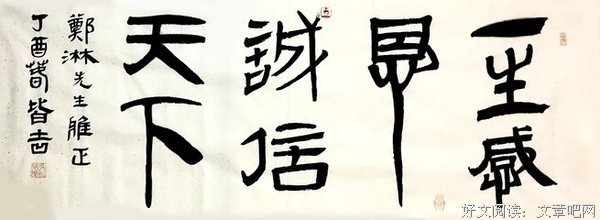 一生感
恩
誠信
天下
鄭淋先生雅正
丁酉萅皆
好文阅读：文章吧网